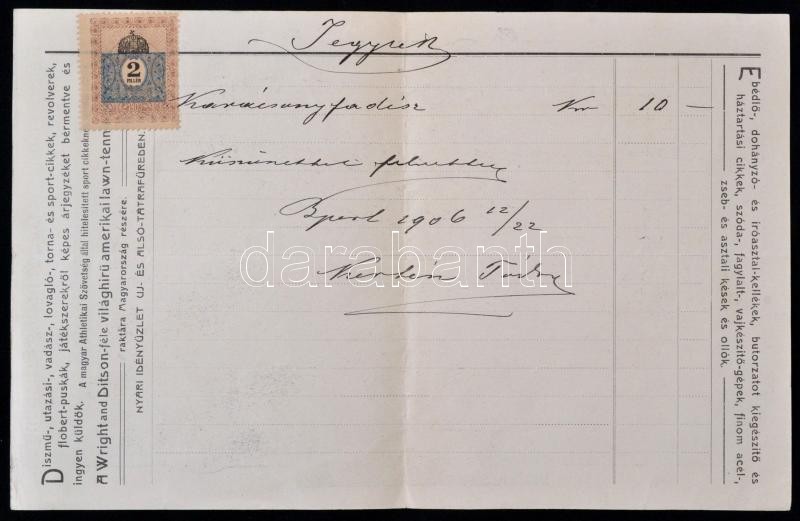 Jegyzék
2
FILLÉR
Karácsonyfadísz Kr 10 —
Köszönettel felvettem
Bpest 1906 12/22
Kertész Tódor
Díszmű-, utazási-, vadász-, lovagló-, torna- és sport-cikkek, revolverek,
flobert-puskák, játékszerekről képes árjegyzéket bérmentve és
ingyen küldök. A magyar Athletikai Szövetség által hitelesített sport cikkekne
A Wright and Ditson-féle világhirű amerikai lawn-tenn
raktára Magyarország részére.
NYÁRI IDÉNYÜZLET UJ- ÉS ALSÓ-TÁTRAFÜREDEN.
Ebédlő-, dohányzó- és iróasztal-kellékek, butorzatot kiegészítő és
háztartási cikkek, szóda-, fagylalt-, vajkészítő-gépek, finom acél-,
zseb- és asztali kések és ollók.
darabanth